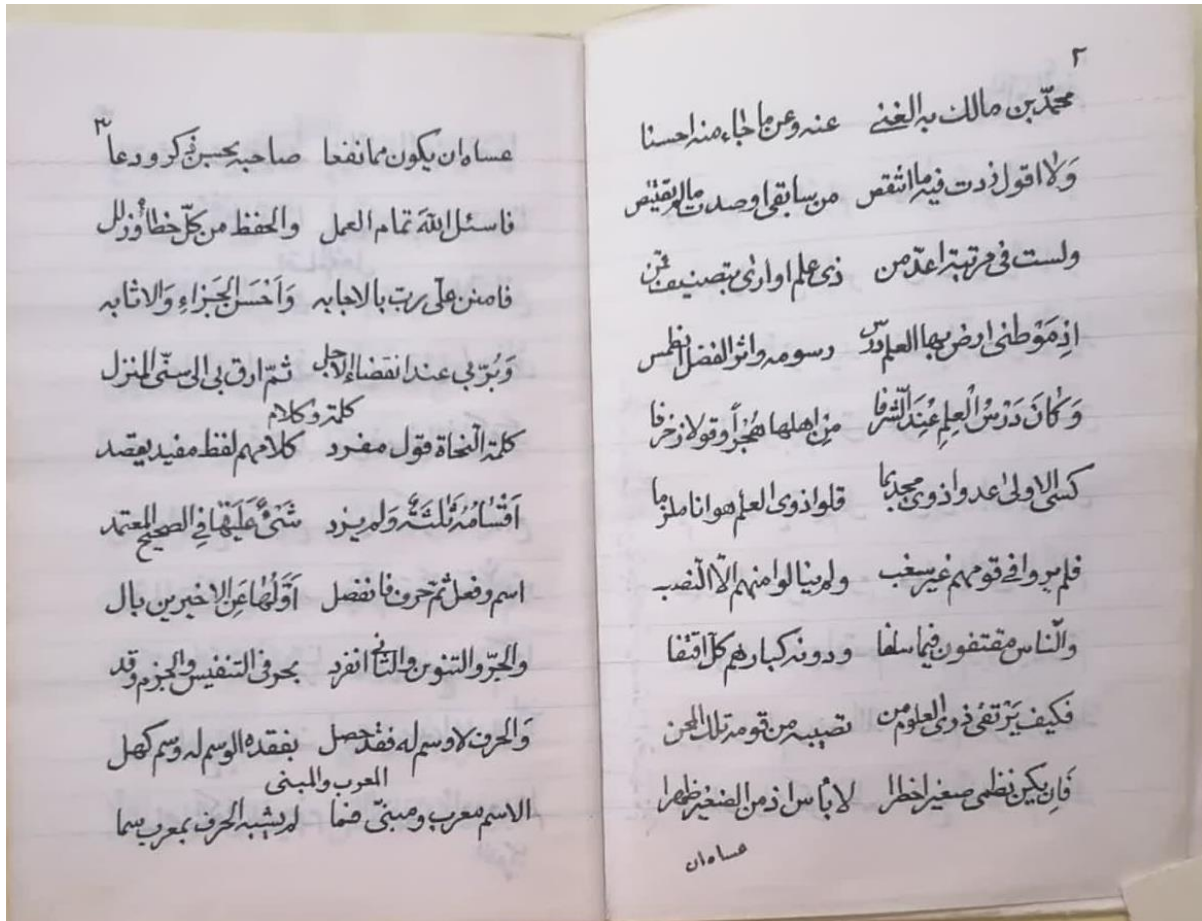 ٢
محمّد بن مالك به الغني عنه وعن ما جاء منه احسنا
وَلا اقول زدت فيه ما انتقص من سابقي او صدت ما لم يقتنص
ولست في مرتبة اعدّ من ذي علم او ارى بتصنيف قمن
اذ مَوْطني ارض بها العلم درس رسومه واثر الفضل انطمس
وَكانَ دَرْسُ الْعِلمِ عِنْدَ الشّرفا مِن اهلها هُجْراً وقولا زخرفا
كسى الاولى عدوا ذوى مجد بما قلوا ذوى العلم هوانا ملزما
فلم يروا في قومهم غير سغب ولم ينالوا منهم الّا النّصب
والنّاس مقتفون فيما سلفا ودونه كبارهم كلّ اقتفا
فكيف يَرْتقى ذوى العلوم من تصيبه من قومه تلك المحن
فَاِن يكن نظمى صغيرا خطرا لا بأس اذ من الصّغير ظهرا
عساه ان
٣
عساه ان يكون مما نفعا صاحبه بحسن ذكر ودعا
فاسئل اللهَ تمام العمل والحفظ من كلّ خطاٍ وزلل
فامنن علىّ ربّ بالاجابه وَاَحْسَن الجَزاءِ وَالاثابه
وَبُرّ بي عند انقضاء الاجل ثمّ ارق بي الى سنّى المنزل
كلمة وكلام
كلمة النّحاة قول مفرد كلامهم لفظ مفيد يقصد
اَقْسامُهُ ثَلثَةٌ وَلم يزد شَىْءٌ عَلَيْها فِي الصحيح المعتمد
اسم وفعل ثمّ حرف فانفصل اَوّلُها عَنِ الاخيرين بال
والجرّ والتنوين والثّانى انفرد بحرفى التنفيس والجزم وقد
وَالحرف لا وسم له فقد حصل بفقده الوسم له وسم كهل
المعرب والمبنى
الاسم معرب ومبنىّ فما لم يشبه الحرف بمعرب سما